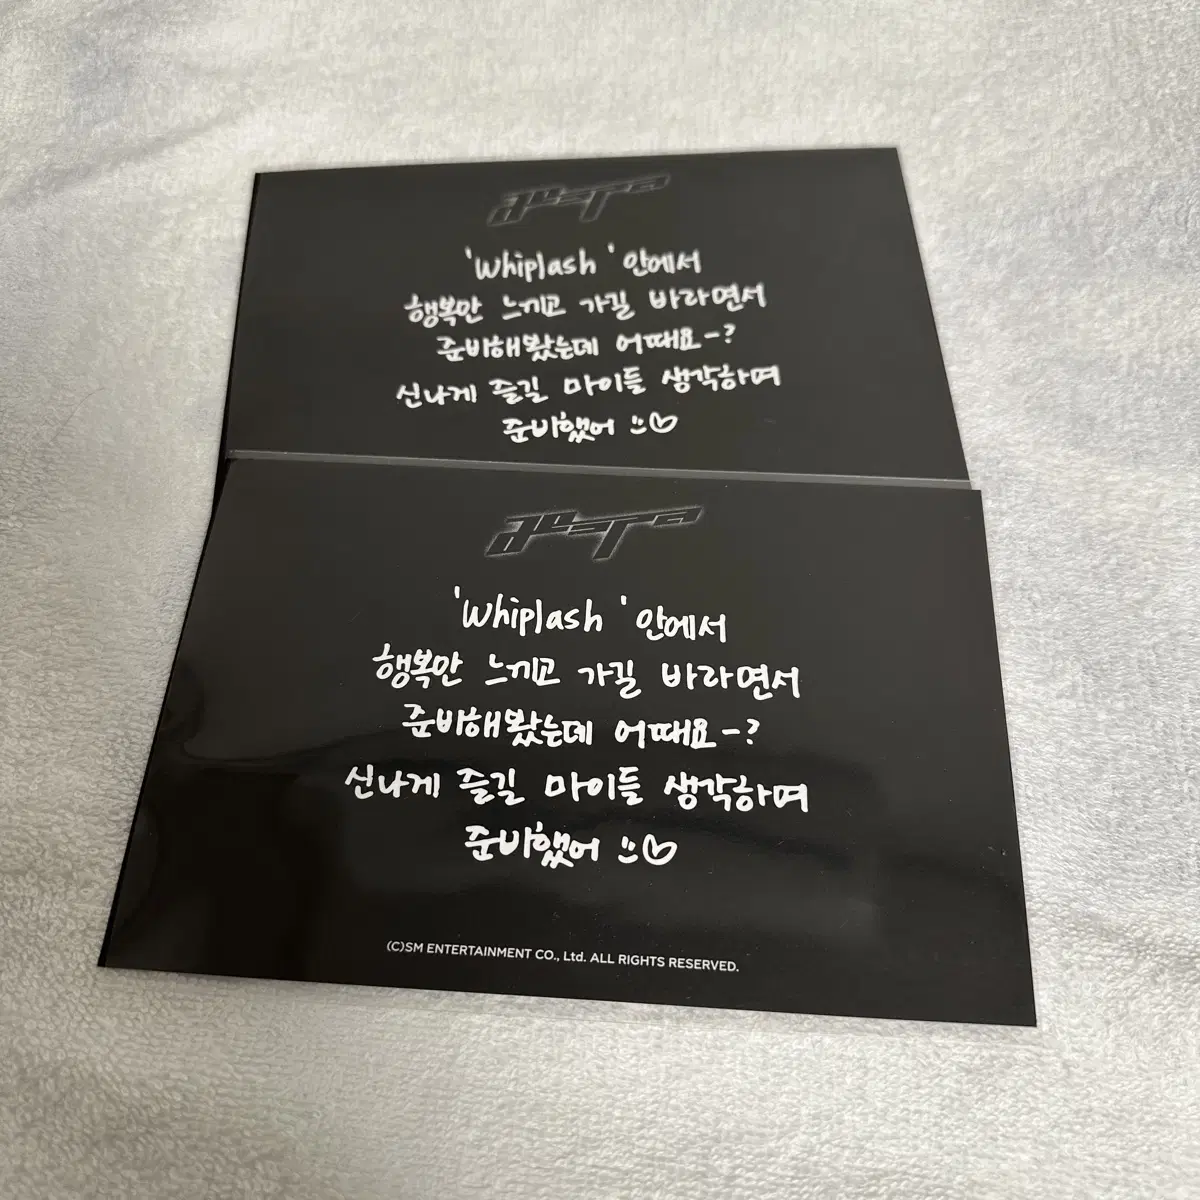 aespa
'Whiplash' 안에서
행복만 느끼고 가길 바라면서
준비해봤는데 어때요-?
신나게 즐길 마이들 생각하며
준비했어 :)♡
aespa
'Whiplash' 안에서
행복만 느끼고 가길 바라면서
준비해봤는데 어때요-?
신나게 즐길 마이들 생각하며
준비했어 :)♡
(C)SM ENTERTAINMENT CO., Ltd. ALL RIGHTS RESERVED.